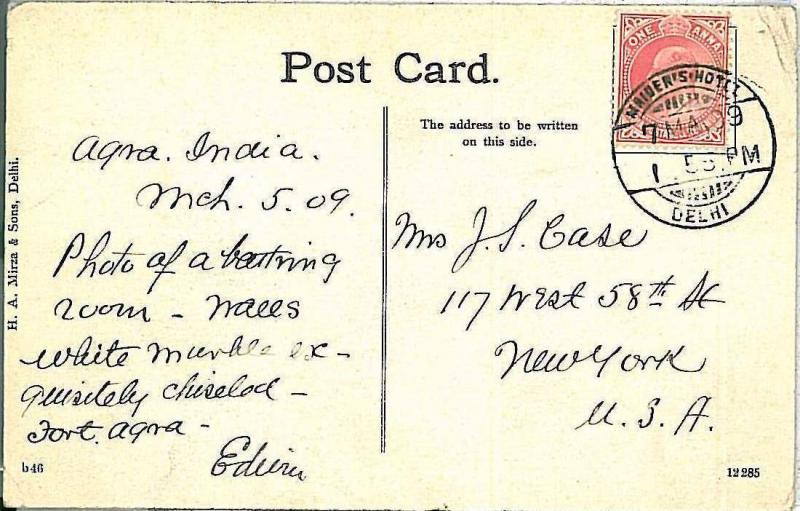 ONE ANNA
Post Card.
MAIDEN'S HOTEL
7 MA 09
1.55.PM
DELHI
The address to be written
on this side.
H. A. Mirza & Sons, Delhi.
Agra. India.
Mch. 5. 09.
Photo of a bathing
room - walls
white marble ex-
quisitely chiseled -
Fort. Agra -
Edwin
Mrs J. S. Case
117 West 58th St
New York
U. S. A.
b46
12285